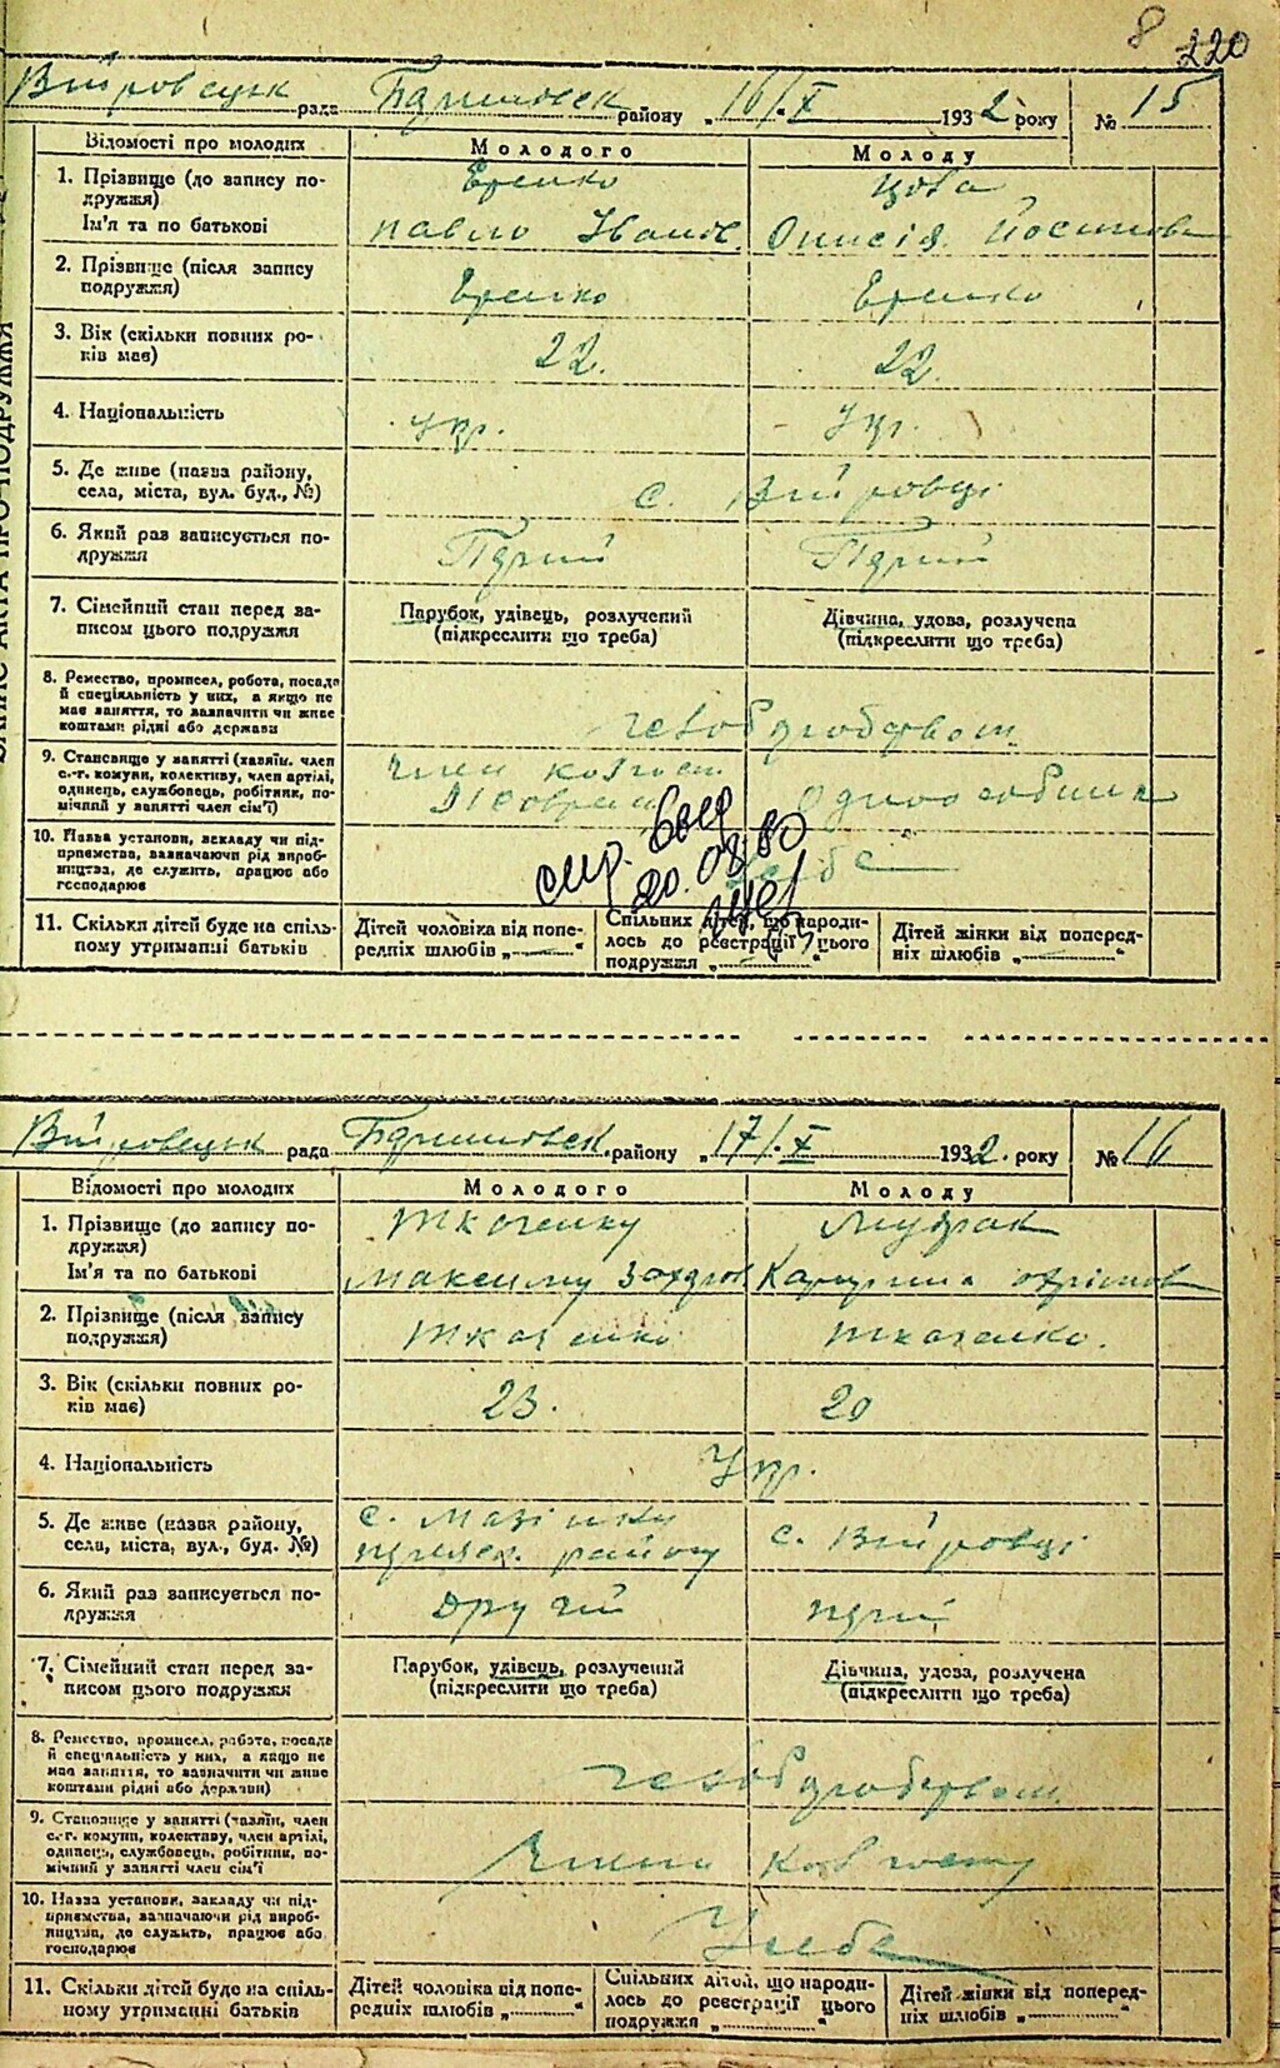 8 220
рада району „16/X 1932 року № 15
Відомості про молодих
Молодого
Молоду
1. Прізвище (до запису по-
дружжя)
Ім'я та по батькові
Павло Іванов.
Онисія
2. Прізвище (після запису
подружжя)
3. Вік (скільки повних ро-
ків має)
22.
22.
4. Національність
Укр.
Укр.
5. Де живе (назва району,
села, міста, вул. буд., №)
с. Війтовці
6. Який раз записується по-
дружжя
7. Сімейний стан перед за-
писом цього подружжя
Парубок, удівець, розлучений
(підкреслити що треба)
Дівчина, удова, розлучена
(підкреслити що треба)
8. Ремество, промисел, робота, посада
й спеціяльність у них, а якщо не
має заняття, то зазначити чи живе
коштами рідні або держави
хлібороброрбством
9. Становище у занятті (хазяїн, член
с.-г. комуни, колективу, член артілі,
одинець, службовець, робітник, по-
мічний у занятті член сім'ї)
член колгосп.
Одноосібниця
10. Назва установи, закладу чи під-
приємства, зазначаючи рід вироб-
ництва, де служить, працює або
господарює
20.08.80
11. Скільки дітей буде на спіль-
ному утриманні батьків
Дітей чоловіка від попе-
редніх шлюбів „ “
Спільних дітей, що народи-
лось до реєстрації цього
подружжя „ “
Дітей жінки від поперед-
ніх шлюбів „ “
рада району „17/X 1932. року № 16
Відомості про молодих
Молодого
Молоду
1. Прізвище (до запису по-
дружжя)
Ім'я та по батькові
Ткаченку
Максиму Захаров.
2. Прізвище (після запису
подружжя)
Ткаченко
Ткаченко.
3. Вік (скільки повних ро-
ків має)
23.
20
4. Національність
Укр.
5. Де живе (назва району,
села, міста, вул., буд. №)
с. Мазінку
району
с. Війтовці
6. Який раз записується по-
дружжя
Другий
7. Сімейний стан перед за-
писом цього подружжя
Парубок, удівець, розлучений
(підкреслити що треба)
Дівчина, удова, розлучена
(підкреслити що треба)
8. Ремество, промисел, робота, посада
й спеціяльність у них, а якщо не
має заняття, то зазначити чи живе
коштами рідні або держави)
9. Становище у занятті (хазяїн, член
с.-г. комуни, колективу, член артілі,
одинець, службовець, робітник, по-
мічний у занятті член сім'ї
Члени колгоспу
10. Назва установи, закладу чи під-
приємства, зазначаючи рід вироб-
ництва, де служить, працює або
господарює
У себе
11. Скільки дітей буде на спіль-
ному утриманні батьків
Дітей чоловіка від попе-
редніх шлюбів „ “
Спільних дітей, що народи-
лось до реєстрації цього
подружжя „ “
Дітей жінки від поперед-
ніх шлюбів „ “